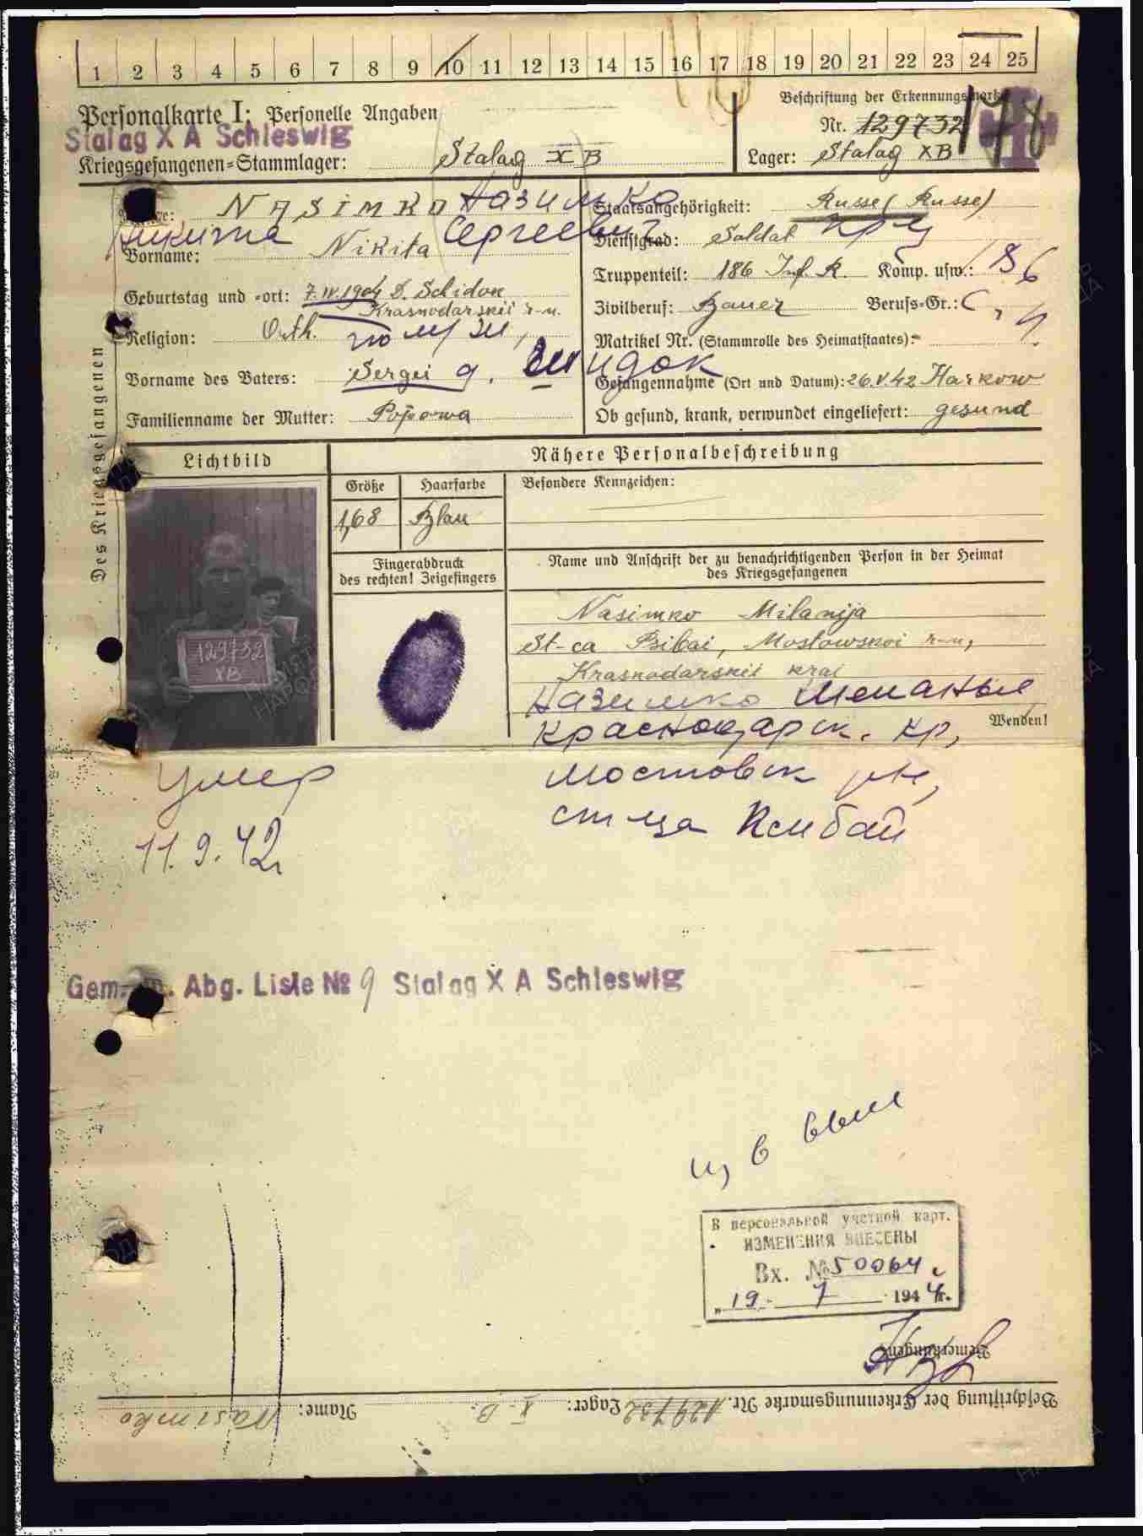 1 2 3 4 5 6 7 8 9 10 11 12 13 14 15 16 17 18 19 20 21 22 23 24 25
Personalkarte I: Personelle Angaben
Stalag X A Schleswig
Kriegsgefangenen-Stammlager: Stalag X B
Beschriftung der Erkennungsmarke
Nr. 129732
178
Lager: Stalag XB
Des Kriegsgefangenen
NASIMKO Назимко
Никита Сергеевич
Vorname: Nikita
Geburtstag und -ort: 7.IV.1904 D. Schidok
Krasnodarskii r-n.
Religion: Orth.
Vorname des Vaters: Sergei
Familienname der Mutter: Popowa
Staatsangehörigkeit: Russe (Russe)
Dienstgrad: Soldat
Truppenteil: 186 Inf. R. Komp. usw.:
Zivilberuf: Bauer Berufs-Gr.:
Matrikel Nr. (Stammrolle des Heimatstaates):
Gefangennahme (Ort und Datum): 26.V.42 Harkow
Ob gesund, krank, verwundet eingeliefert: gesund
Lichtbild
129732
XB
Nähere Personalbeschreibung
Größe
1,68
Haarfarbe
Blau
Besondere Kennzeichen:
Fingerabdruck
des rechten! Zeigefingers
Name und Anschrift der zu benachrichtigenden Person in der Heimat
des Kriegsgefangenen
Nasimko Milanija
St-ca Psibai, Mostowskoi r-n,
Krasnodarskii krai
Назимко Меланья
Краснодарск. кр,
Wenden!
Мостовск рн,
ст ца Псибай
умер
11.9.42г
Gem. Abg. Liste № 9 Stalag X A Schleswig
В персональной учетной карт.
ИЗМЕНЕНИЯ ВНЕСЕНЫ
Вх. № 50064
"19" 7 1944г.
Bemerkungen:
Beschriftung der Erkennungsmarke Nr. 129732 Lager: X.B. Name: Nasimko